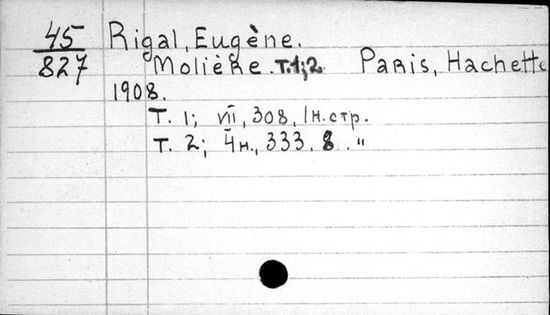 45
827
Rigal, Eugène.
Molière. т.1; 2. Paris, Hachette
1908.
т. 1; VII, 308, 1 н. стр.
т. 2; 4 н., 333. 8. "